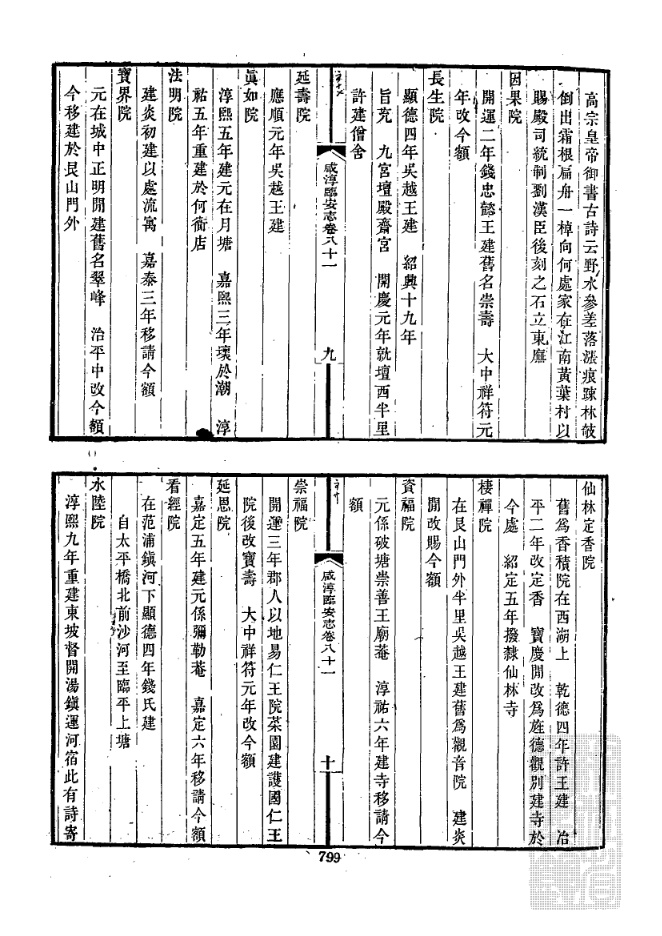 高宗皇帝御書古詩云野水參差落漲痕疎林欹
倒出霜根扁舟一棹向何處家在江南黃葉村以
賜殿司統制劉漢臣後刻之石立東廡
因果院
開運二年錢忠懿王建舊名崇壽 大中祥符元
年改今額
長生院
顯德四年吳越王建 紹興十九年
旨充 九宮壇殿齋宮 開慶元年就壇西半里
許建僧舍
咸淳臨安志卷八十一
九
延壽院
應順元年吳越王建
眞如院
淳熙五年建元在月塘 嘉熙三年壞於潮 淳
祐五年重建於何衙店
法明院
建炎初建以處流寓 嘉泰三年移請今額
寶界院
元在城中正明開建舊名翠峰 治平中改今額
今移建於艮山門外
仙林定香院
舊爲香積院在西湖上 乾德四年許王建 冶
平二年改定香 寶慶開改爲旌德觀別建寺於
今處 紹定五年撥隸仙林寺
棲禪院
在艮山門外半里吳越王建舊爲觀音院 建炎
開改賜今額
資福院
元係破塘崇善王廟菴 淳祐六年建寺移請今
額
咸淳臨安志卷八十一
十
崇福院
開運三年郡人以地易仁王院菜園建護國仁王
院後改寶壽 大中祥符元年改今額
延恩院
嘉定五年建元係彌勒菴 嘉定六年移請今額
看經院
在范浦鎭河下顯德四年錢氏建
自太平橋北前沙河至臨平上塘
水陸院
淳熙九年重建東坡督開湯鎭運河宿此有詩寄
799